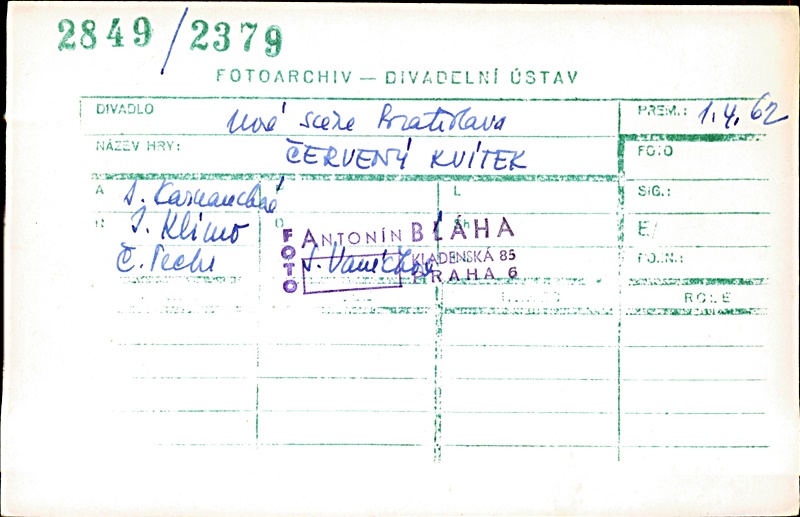 2849/2379
FOTOARCHIV — DIVADELNÍ ÚSTAV
DIVADLO Nová scéna Bratislava PREM.: 1.4.62
NÁZEV HRY: ČERVENÝ KVÍTEK FOTO
A I. Karnauchová L SIG.:
R J. Klimo O Sh E/
Č. Pecht J. Vaníčková PO.N.:
FOTO ANTONÍN BLÁHA
KLADENSKÁ 85
PRAHA 6
ROLE